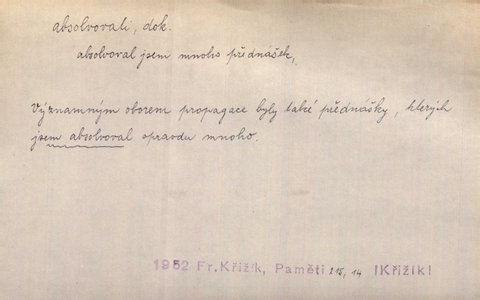 absolvovali, dok.
absolvoval jsem mnoho přednášek,
Významným oborem propagace byly také přednášky, kterých
jsem absolvoval opravdu mnoho.
1952 Fr. Křižík, Paměti 215, 14 !Křižík!